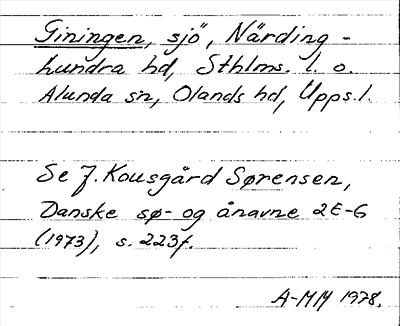 Giningen, sjö, Närding-
hundra hd, Sthlms. l. o.
Alunda sn, Olands hd, Upps. l.
Se J. Kousgård Sørensen,
Danske sø- og ånavne 2E-G
(1973), s. 223f.
A-MM 1978.